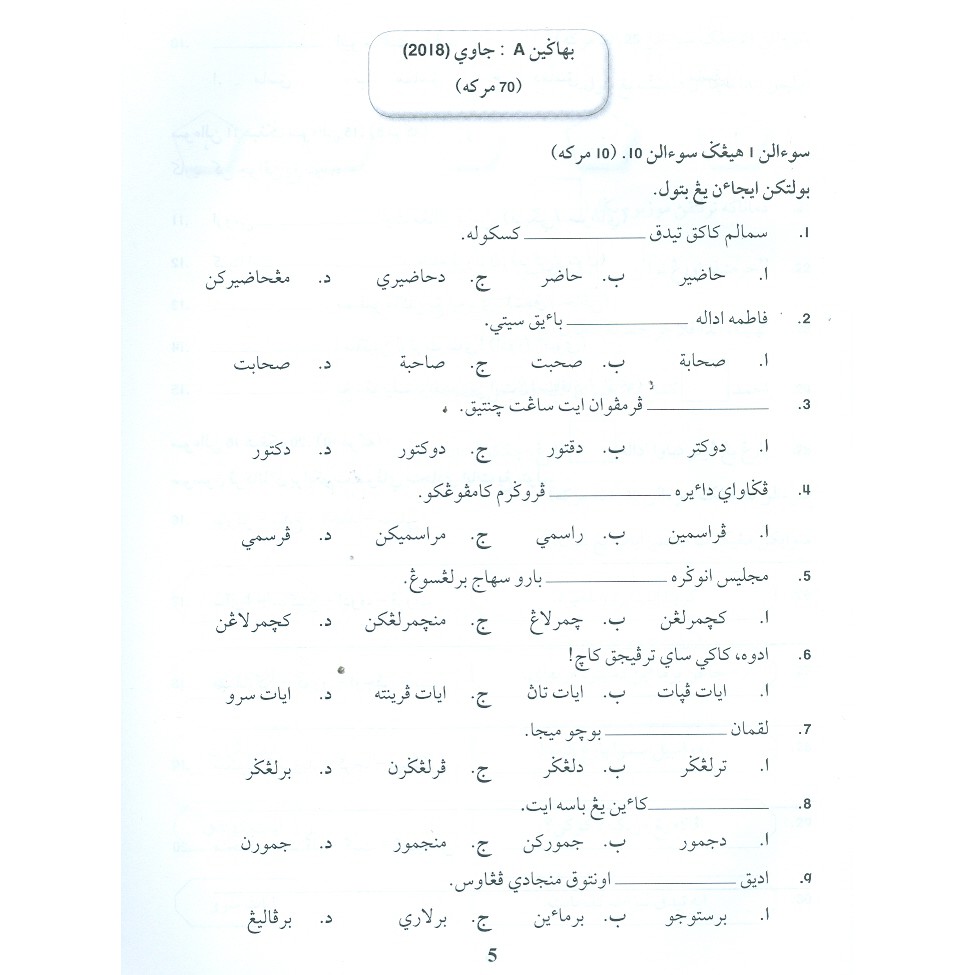 بهاݢين A : جاوي (2018)
(70 مركه)
سوءالن 1 هيڠݢ سوءالن 10. (10 مركه)
بولتكن ايجاءن يڠ بتول.
1. سمالم كاكق تيدق ________ كسكوله.
ا. حاضير ب. حاضر ج. دحاضيري د. مڠحاضيركن
2. فاطمه اداله ________ باءيق سيتي.
ا. صحابة ب. صحبت ج. صاحبة د. صحابت
3. ________ ڤرمڤوان ايت ساڠت چنتيق.
ا. دوكتر ب. دقتور ج. دوكتور د. دكتور
4. ڤݢاواي داءيره ________ ڤروݢرم كامڤوڠكو.
ا. ڤراسمين ب. راسمي ج. مراسميكن د. ڤرسمي
5. مجليس انوݢره ________ بارو سهاج برلڠسوڠ.
ا. كچمرلڠن ب. چمرلاڠ ج. منچمرلڠكن د. كچمرلاڠن
6. ادوه، كاكي ساي ترڤيجق كاچ!
ا. ايات ڤڽات ب. ايات تاڽ ج. ايات ڤرينته د. ايات سرو
7. لقمان ________ بوچو ميجا.
ا. ترلڠݢر ب. دلڠݢر ج. ڤرلڠݢرن د. برلڠݢر
8. ________ كاءين يڠ باسه ايت.
ا. دجمور ب. جموركن ج. منجمور د. جمورن
9. اديق ________ اونتوق منجادي ڤڠاوس.
ا. برستوجو ب. برماءين ج. برلاري د. برڤاليڠ
5